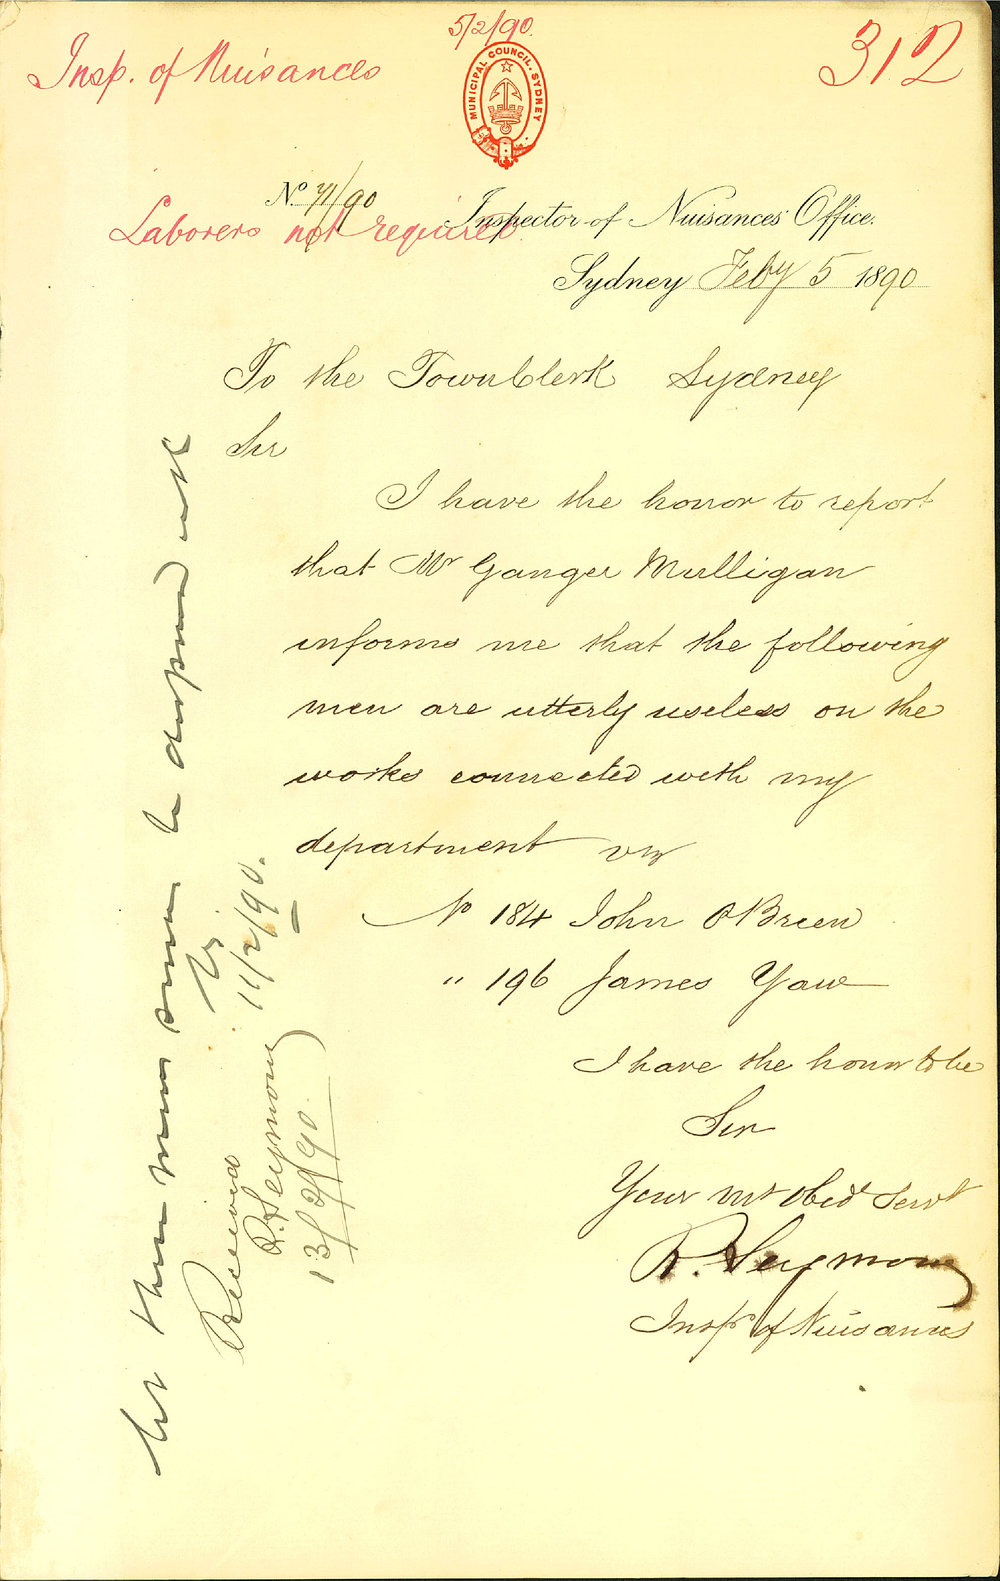 5/2/90.
Insp. of Nuisances
312
MUNICIPAL COUNCIL. SYDNEY
No. 71/90
Laborers not required
Inspector of Nuisances Office.
Sydney Feby 5 1890
To the Town Clerk Sydney
Sir
I have the honor to report
that Mr Ganger Mulligan
informs me that the following
men are utterly useless on the
works connected with my
department viz
No 184 John OBrien
" 196 James Yaw
I have the honor to be
Sir
Your mt obed Servt
R. Seymour
Inspr of Nuisances
Let these mens services be dispensed with
11/2/90.
Received
R. Seymour
13/2/90.